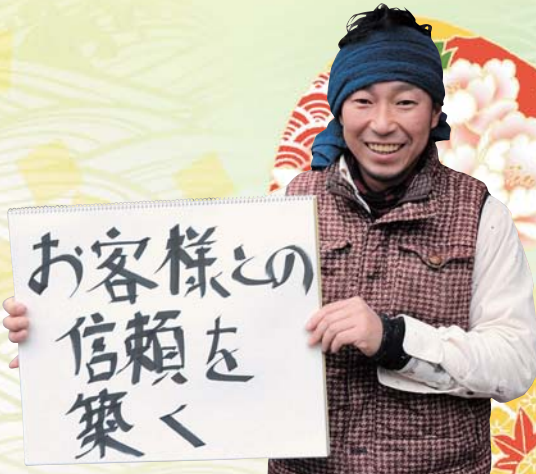 お客様との
信頼を
築く